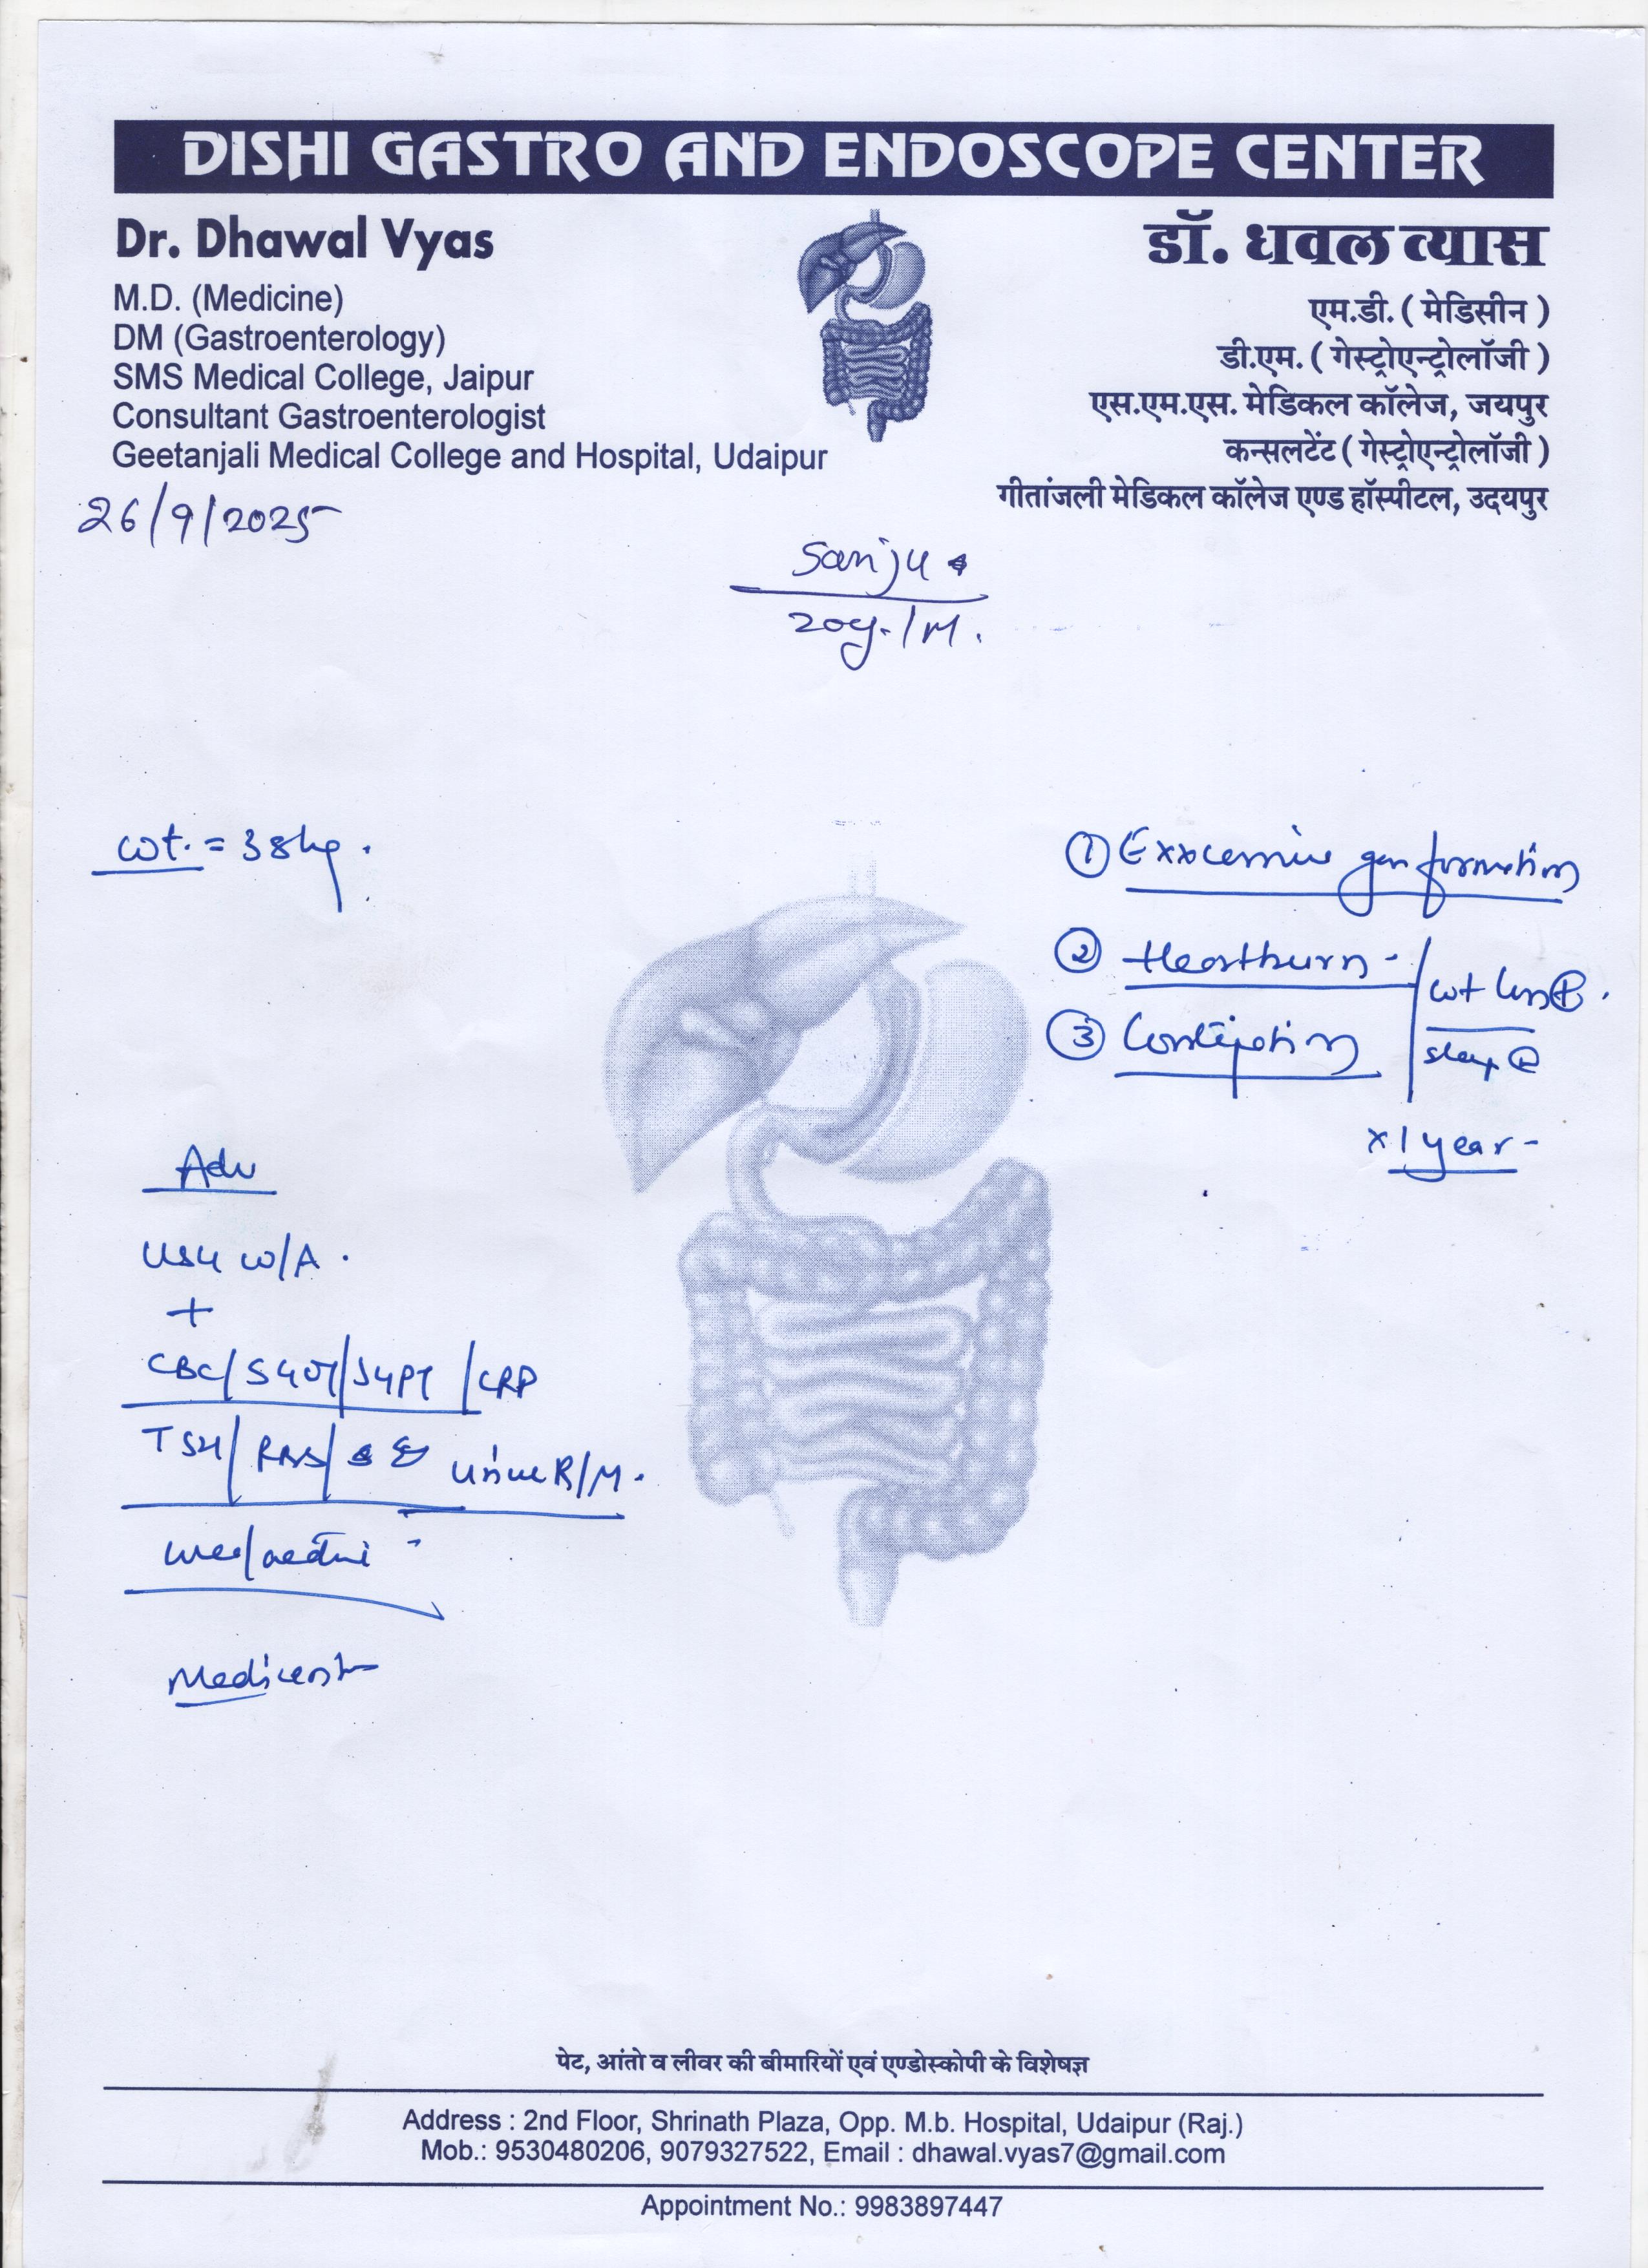 DISHI GASTRO AND ENDOSCOPE CENTER
Dr. Dhawal Vyas
M.D. (Medicine)
DM (Gastroenterology)
SMS Medical College, Jaipur
Consultant Gastroenterologist
Geetanjali Medical College and Hospital, Udaipur
डॉ. धवल व्यास
एम.डी. ( मेडिसीन )
डी.एम. ( गेस्ट्रोएन्ट्रोलॉजी )
एस.एम.एस. मेडिकल कॉलेज, जयपुर
कन्सलटेंट ( गेस्ट्रोएन्ट्रोलॉजी )
गीतांजली मेडिकल कॉलेज एण्ड हॉस्पीटल, उदयपुर
26/9/2025
Sanju
20y./M.
wt. = 38kg.
① Exxcessive gas formation
② Heartburn -
wt loss ⊕.
③ Constipation
sleep
x 1 year -
Adv
USG W/A.
+
CBC/SGOT/SGPT/CRP
TSH/RBS/ Urine R/M.
Urea/
पेट, आंतो व लीवर की बीमारियों एवं एण्डोस्कोपी के विशेषज्ञ
Address : 2nd Floor, Shrinath Plaza, Opp. M.b. Hospital, Udaipur (Raj.)
Mob.: 9530480206, 9079327522, Email : dhawal.vyas7@gmail.com
Appointment No.: 9983897447